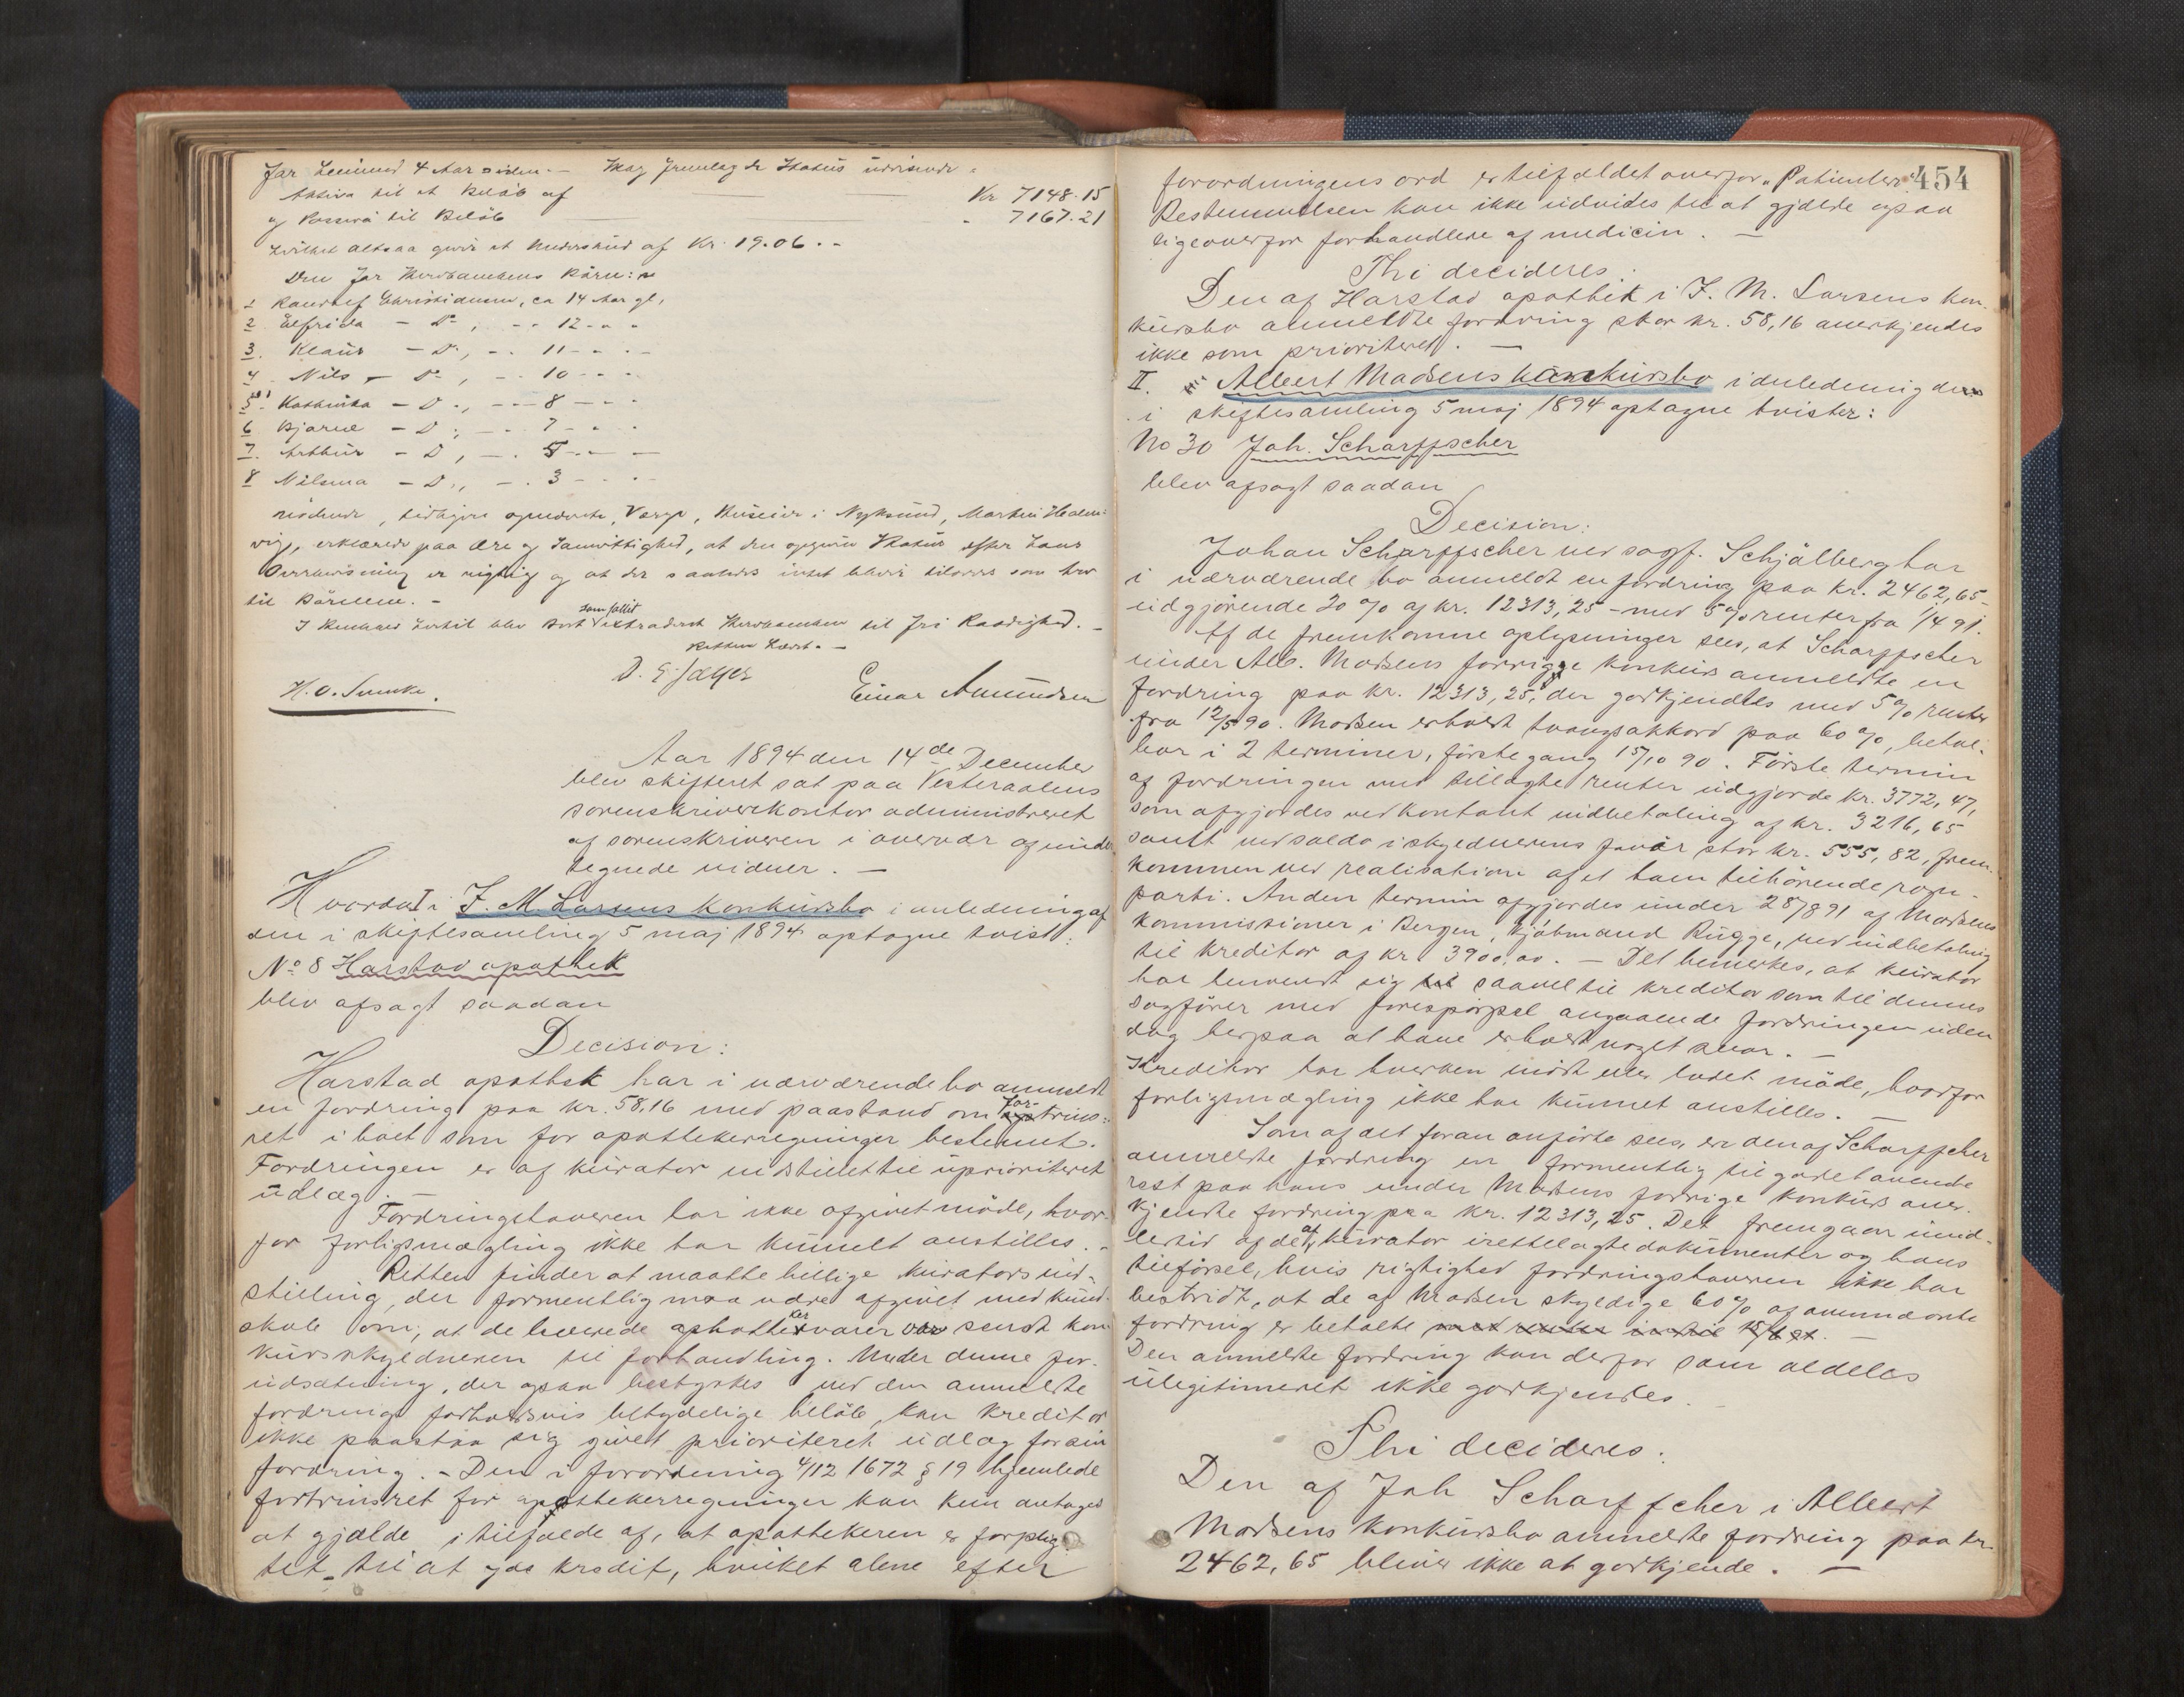 for 4 Aar siden. – Status udvisende
Aktiva til et Beløb af Kr 7148.15
og Passiva til Beløb - 7167.21
hvilket altsaa giver et Underskud af Kr. 19.06. –
Den for Børn:
1 Christiansen, ca 14 Aar gl,
2 Elfrida – Do , - - 12 - - -
3. Klaus – Do, - . 11 - - - -
4. Nils – Do , - . 10 - - -
5. Kathinka – Do., - - - 8 - - -
6 Bjarne – Do , - - 7 - - -
7. Arthur – Do , - . 5 - - -
8 Nilsina – Do., - . 3 - - -
Værge, i Nyksund, Martin
erklærede paa Ære og Samvittighed, at den opgivne Status efter hans
Overbevisning er rigtig og at der saaledes intet bliver tilovers som Arv
til Børnene. –
I Henhold hertil blev Boet som fallit extraderet til fri Raadighed. –
Retten hævet. –
H. O. D. E. Jæger Einar Amundsen
Aar 1894 den 14de December
blev skifteret sat paa Vesteraalens
sorenskriverkontor administreret
af sorenskriveren i overvær af under
tegnede vidner. –
Hvorda I i J. M. Larsens Konkursbo i anledning af
den i skiftesamling 5 maj 1894 optagne tvist:
No 8 Harstad apothek
blev afsagt saadan
Decision:
Harstad apothek har i nærværende bo anmeldt
en fordring paa kr. 58,16 med paastand om fortrins-
ret i boet som for apothekerregninger bestemt.
Fordringen er af kurator indstillet til uprioriteret
udlæg. –
Fordringshaveren har ikke afgivet møde, hvor-
for forligsmægling ikke har kunnet anstilles. –
Retten finder at maatte billige kurators ind-
stilling, der formentlig maa være afgivet med kund-
skab om, at de leverede apothekervarer var sendt kon
kursskyldneren til forhandling. Under denne for-
udsætning, der ogsaa bestyrkes ved den anmeldte
fordrings forholdsvis betydelige beløb, kan kreditor
ikke paastaa sig givet prioriteret udlæg for sin
fordring. – Den i forordning 4/12 1672 § 19 hjemlede
fortrinsret for apothekerregninger kan kun antages
at gjælde i tilfælde af, at apothekeren er forplig-
tet til at yde kredit, hvilket alene efter
454
forordningens ord er tilfældet overfor „Patienter“.
Bestemmelsen kan ikke udvides til at gjælde ogsaa
ligeoverfor forhandlere af medicin. –
Thi decideres:
Den af Harstad apothek i J. M. Larsens kon-
kursbo anmeldte fordring stor kr. 58,16 anerkjendes
ikke som prioriteret. –
II. Albert Madsens konkursbo i anledning den
i skiftesamling 5 maj 1894 optagne tvister:
No 30 Joh. Scharffscher
blev afsagt saadan
Decision:
Johan Scharffscher ved sagf. Schjølberg har
i nærværende bo anmeldt en fordring paa kr. 2462,65 –
udgjørende 20 % af kr. 12313,25 – med 5 % renter fra 1/4 91.
Af de fremkomne oplysninger sees, at Scharffscher
under Alb. Madsens forrige konkurs anmeldte en
fordring paa kr. 12313,25, der godkjendtes med 5 % renter
fra 12/5 90. Madsen erholdt tvangsakkord paa 60 %, betal-
bar i 2 terminer, første gang 15/10 90. Første termin
af fordringen med tillagte renter udgjorde kr. 3772,47,
som afgjordes ved kontant indbetaling af kr. 3216,65
samt ved saldo i skyldnerens favør stor kr. 555,82, frem-
kommen ved realisation af et ham tilhørende rogn-
parti. Anden termin afgjordes under 28/8 91 af Madsens
kommissionær i Bergen, kjøbmand Rügge, ved indbetaling
til kreditor af kr 3900,00. – Det bemerkes, at kurator
har henvendt sig saavel til kreditor som til dennes
sagfører med forespørgsel angaaende fordringen uden
dog herpaa at have erholdt noget svar. –
Kreditor har hverken mødt eller ladet møde, hvorfor
forligsmægling ikke har kunnet anstilles. –
Som af det foran anførte sees, er den af Scharffscher
anmeldte fordring en formentlig tilgodehavende
rest paa hans under Madsens forrige konkurs aner-
kjendte fordring paa kr. 12313,25. Det fremgaar imid-
lertid af de af kurator irettelagte dokumenter og hans
tilførsel, hvis rigtighed fordringshaveren ikke har
bestridt, at de af Madsen skyldige 60 % af ommeldte
fordring er betalte –
Den anmeldte fordring kan derfor som aldeles
ulegitimeret ikke godkjendes.
Thi decideres:
Den af Joh Scharffscher i Albert
Madsens konkursbo anmeldte fordring paa kr.
2462,65 bliver ikke at godkjende. –